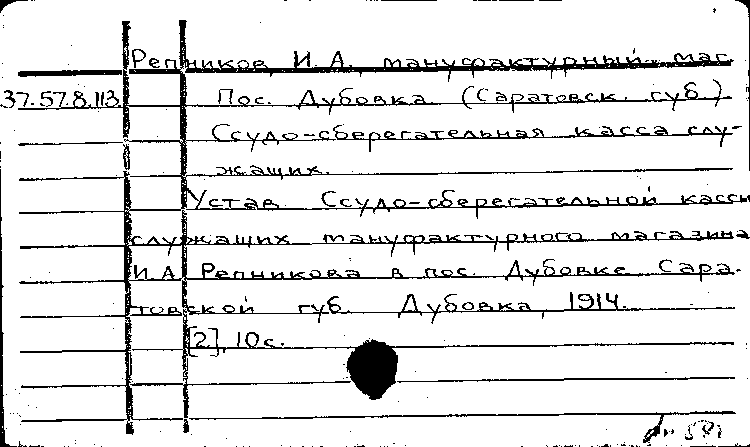 Репников, И. А., мануфактурный маг.
37.57.8.113
Пос. Дубовка (Саратовск. губ.)
Ссудо-сберегательная касса слу-
жащих.
Устав Ссудо-сберегательной кассы
служащих мануфактурного магазина
И.А. Репникова в пос. Дубовке Сара-
товской губ. Дубовка, 1914.
[2], 10с.